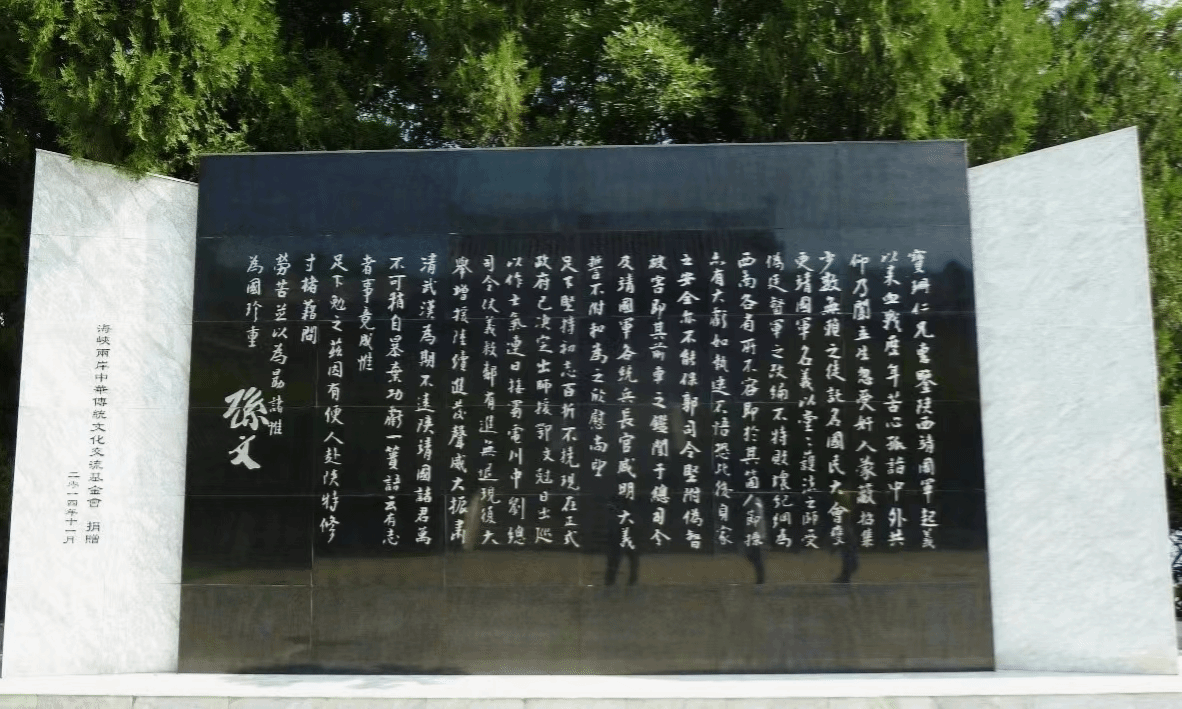 寶珊仁兄書鑒陝西靖國軍起義
以來血戰歷年苦心孤詣中外共
仰乃聞立生忽受奸人蒙蔽招集
少數無賴之徒託名國民大會變
更靖國軍名義以堂二護法之師受
偽廷督軍之改編不特敗壞紀綱為
西南各省所不容即於其箇人節操
亦有大虧如執迷不悟恐此後身家
之安全亦不能保郭司令堅附偽智
被害即其前車之鑒聞于總司令
及靖國軍各統兵長官咸明大義
誓不附和為之欣慰尚望
足下堅持初志百折不撓現在正式
政府已決定出師援鄂文冠日出巡
以作士氣連日接蜀電川中劉總
司令仗義救鄰有進無退現復大
舉增援陸續進發聲威大振肅
清武漢為期不遠陝靖國諸君萬
不可稍自暴棄功虧一簣語云有志
者事竟成惟
足下勉之茲因有便人赴陝特修
寸楮藉問
勞苦並以為勗諸惟
為國珍重
孫文
海峽兩岸中華傳統文化交流基金會 捐贈
二零一四年十一月